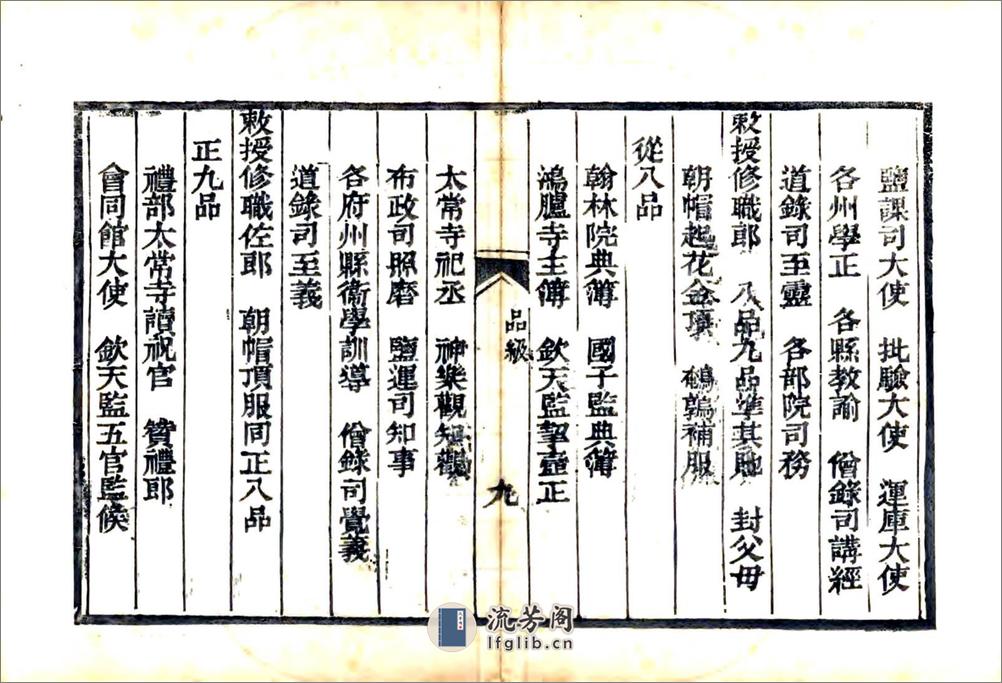 鹽課司大使　批驗大使　運庫大使
各州學正　各縣教諭　僧錄司講經
道錄司至靈　各部院司務
敕授修職郎　八品九品準其貤　封父母
朝帽起花金頂　鵪鶉補服
從八品
翰林院典簿　國子監典簿
鴻臚寺主簿　欽天監挈壺正
品級
九
太常寺祀丞　神樂觀知觀
布政司照磨　鹽運司知事
各府州縣衛學訓導　僧錄司覺義
道錄司至義
敕授修職佐郎　朝帽頂服同正八品
正九品
禮部太常寺讀祝官　贊禮郎
會同館大使　欽天監五官監候
流芳阁
lfglib.cn